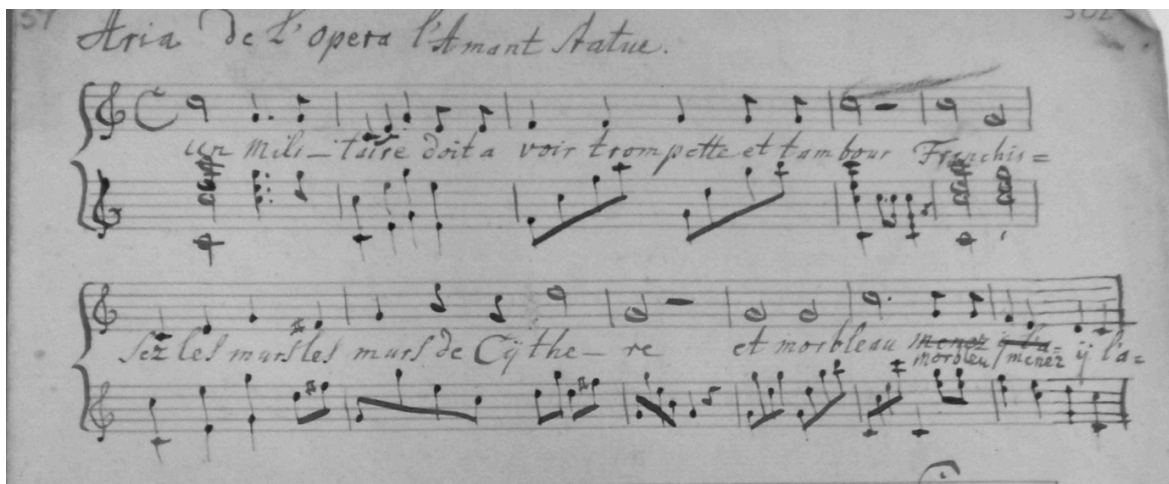 Aria de l'opera l'Amant Statue.
un Mili-taire doit a voir trompette et tambour Franchis=
sez les murs les murs de Cÿthe-re et morbleau menez ÿ l'a=
morbleu menez ÿ l'a=